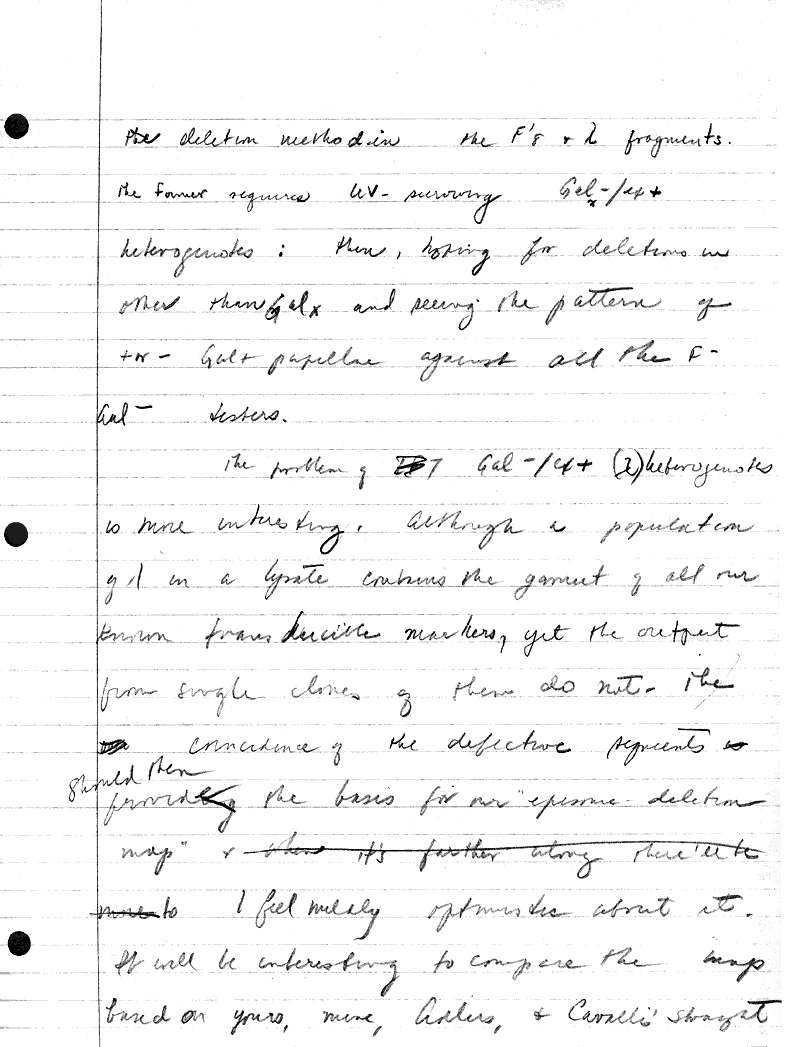 the deletion method in the F's & λ fragments.
The former requires UV- surviving Galx-/ex+
heterogenotes : then, hoping for deletions in
other than Galx and seeing the pattern of
+ or - Gal+ papillae against all the F-
Gal- testers.
The problem of Gal-/ex+ (λ) heterogenotes
is more interesting. Although a population
of λ in a lysate contains the gamut of all our
known transducible markers, yet the output
from single clones of them do not. The
coincidence of the defective segments
should then
provide the basis for our "episome-deletion
map" & when it's farther along there'll be
more to I feel mildly optimistic about it.
It will be interesting to compare the map
based on yours, mine, Adlers, & Cavalli's straight